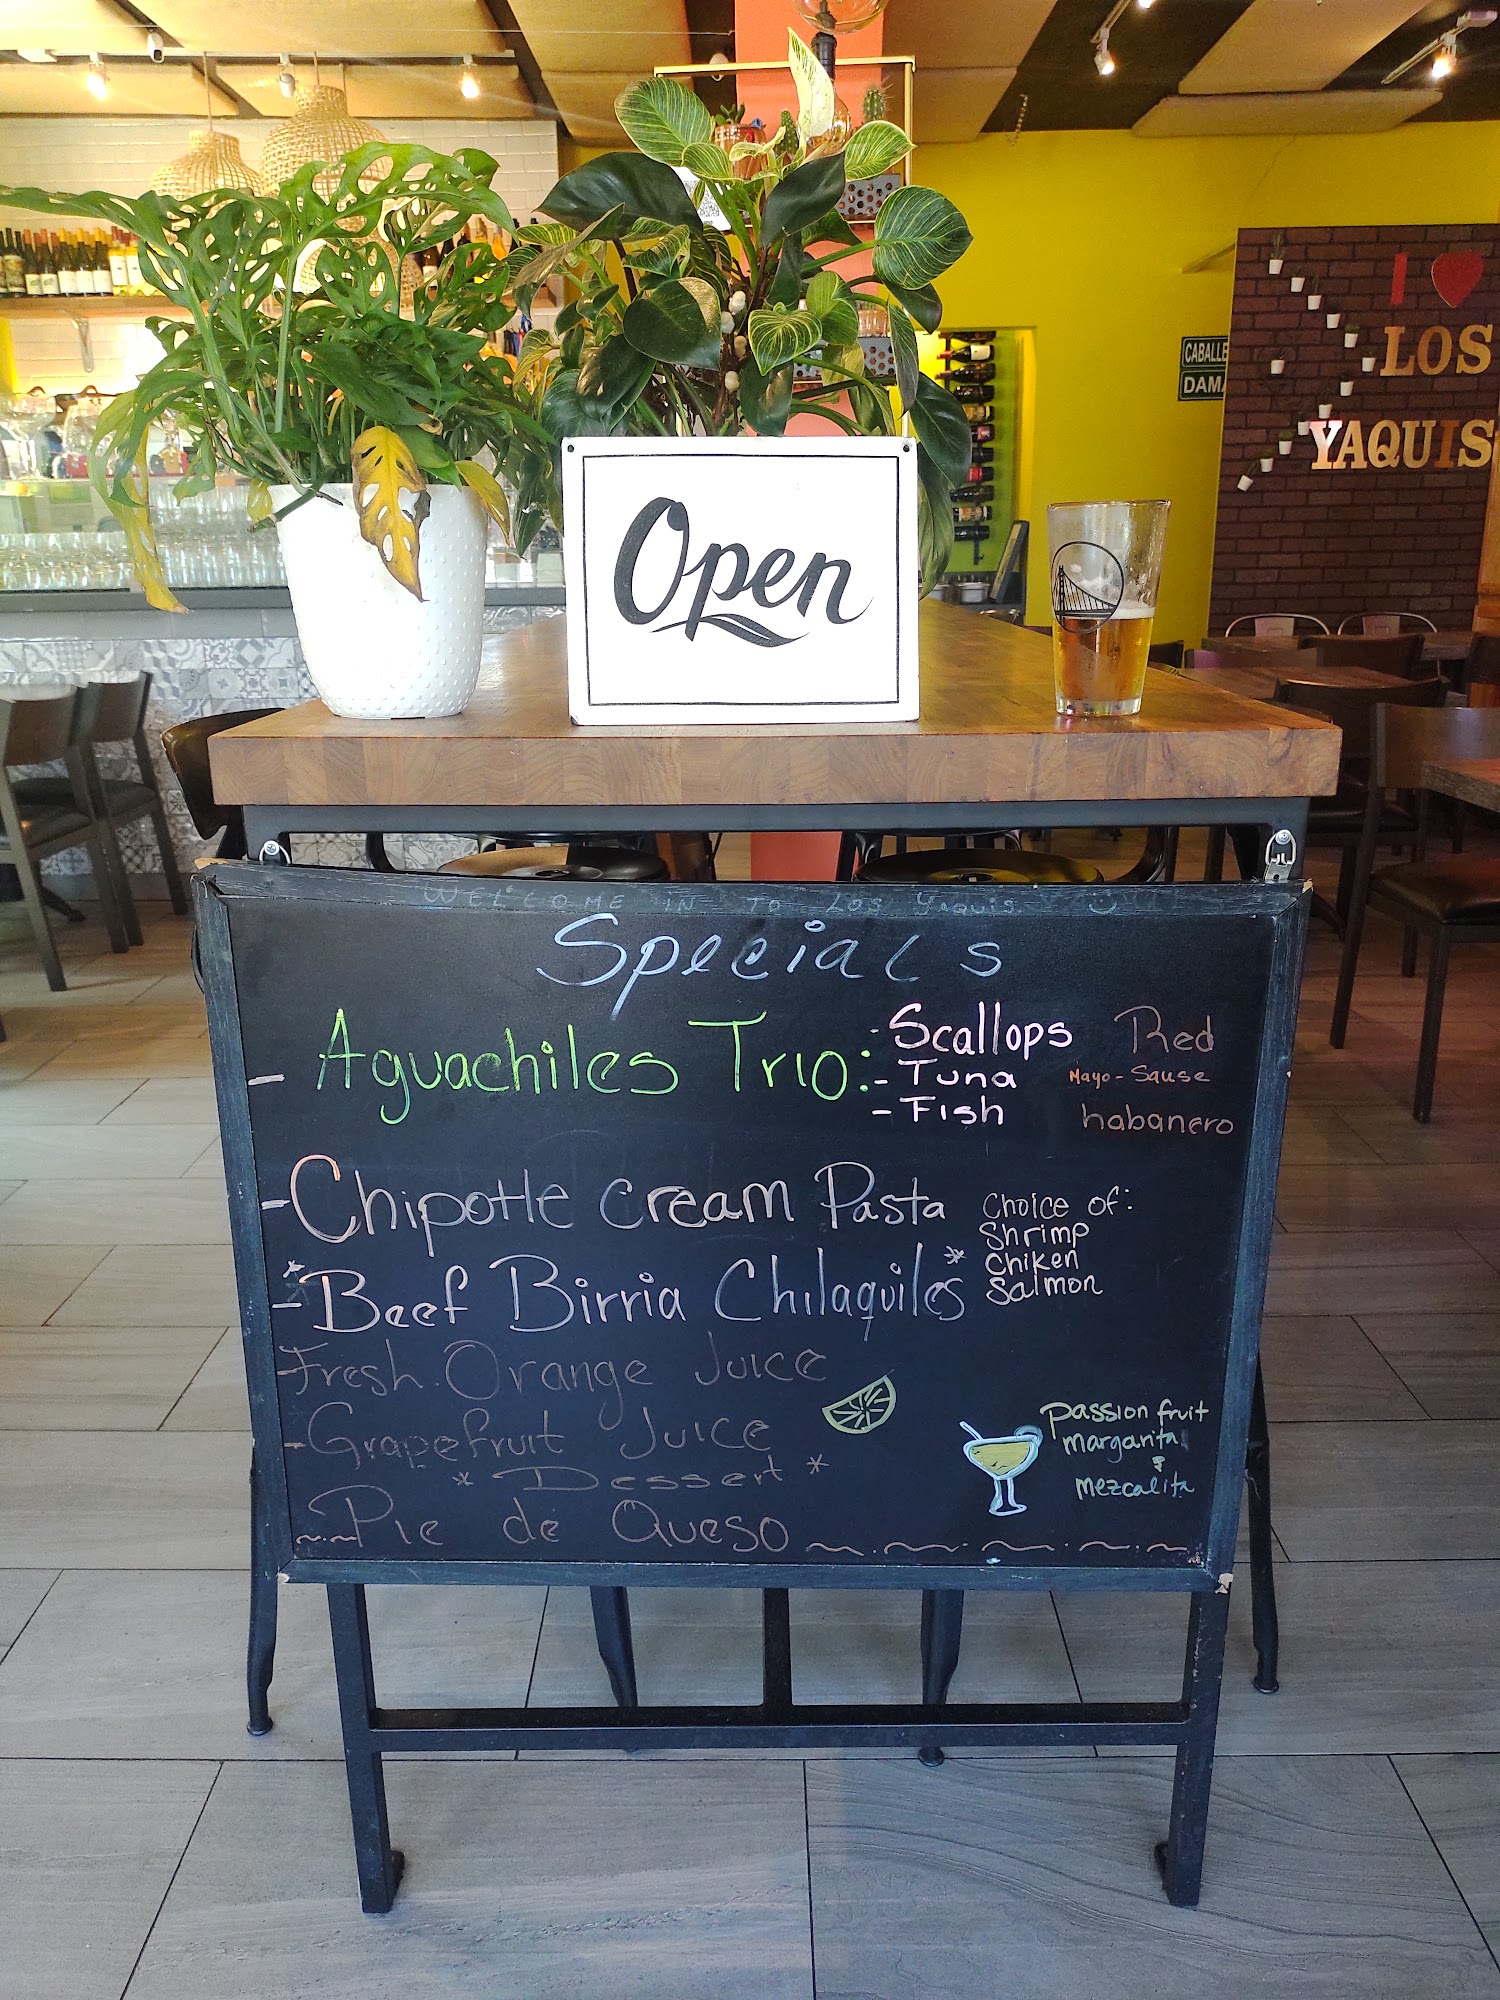 I ❤ LOS
YAQUIS
CABALLE
DAMA
Open
WELCOME IN TO LOS YAQUIS
Specials
- Aguachiles Trio: - Scallops Red
- Tuna Mayo-Sause
- Fish habanero
- Chipotle cream Pasta Choice of:
Shrimp
Chiken
Salmon
*- Beef Birria Chilaquiles*
- Fresh. Orange Juice
- Grapefruit Juice
* Dessert *
Pie de Queso
passion fruit
margarita
&
mezcalita